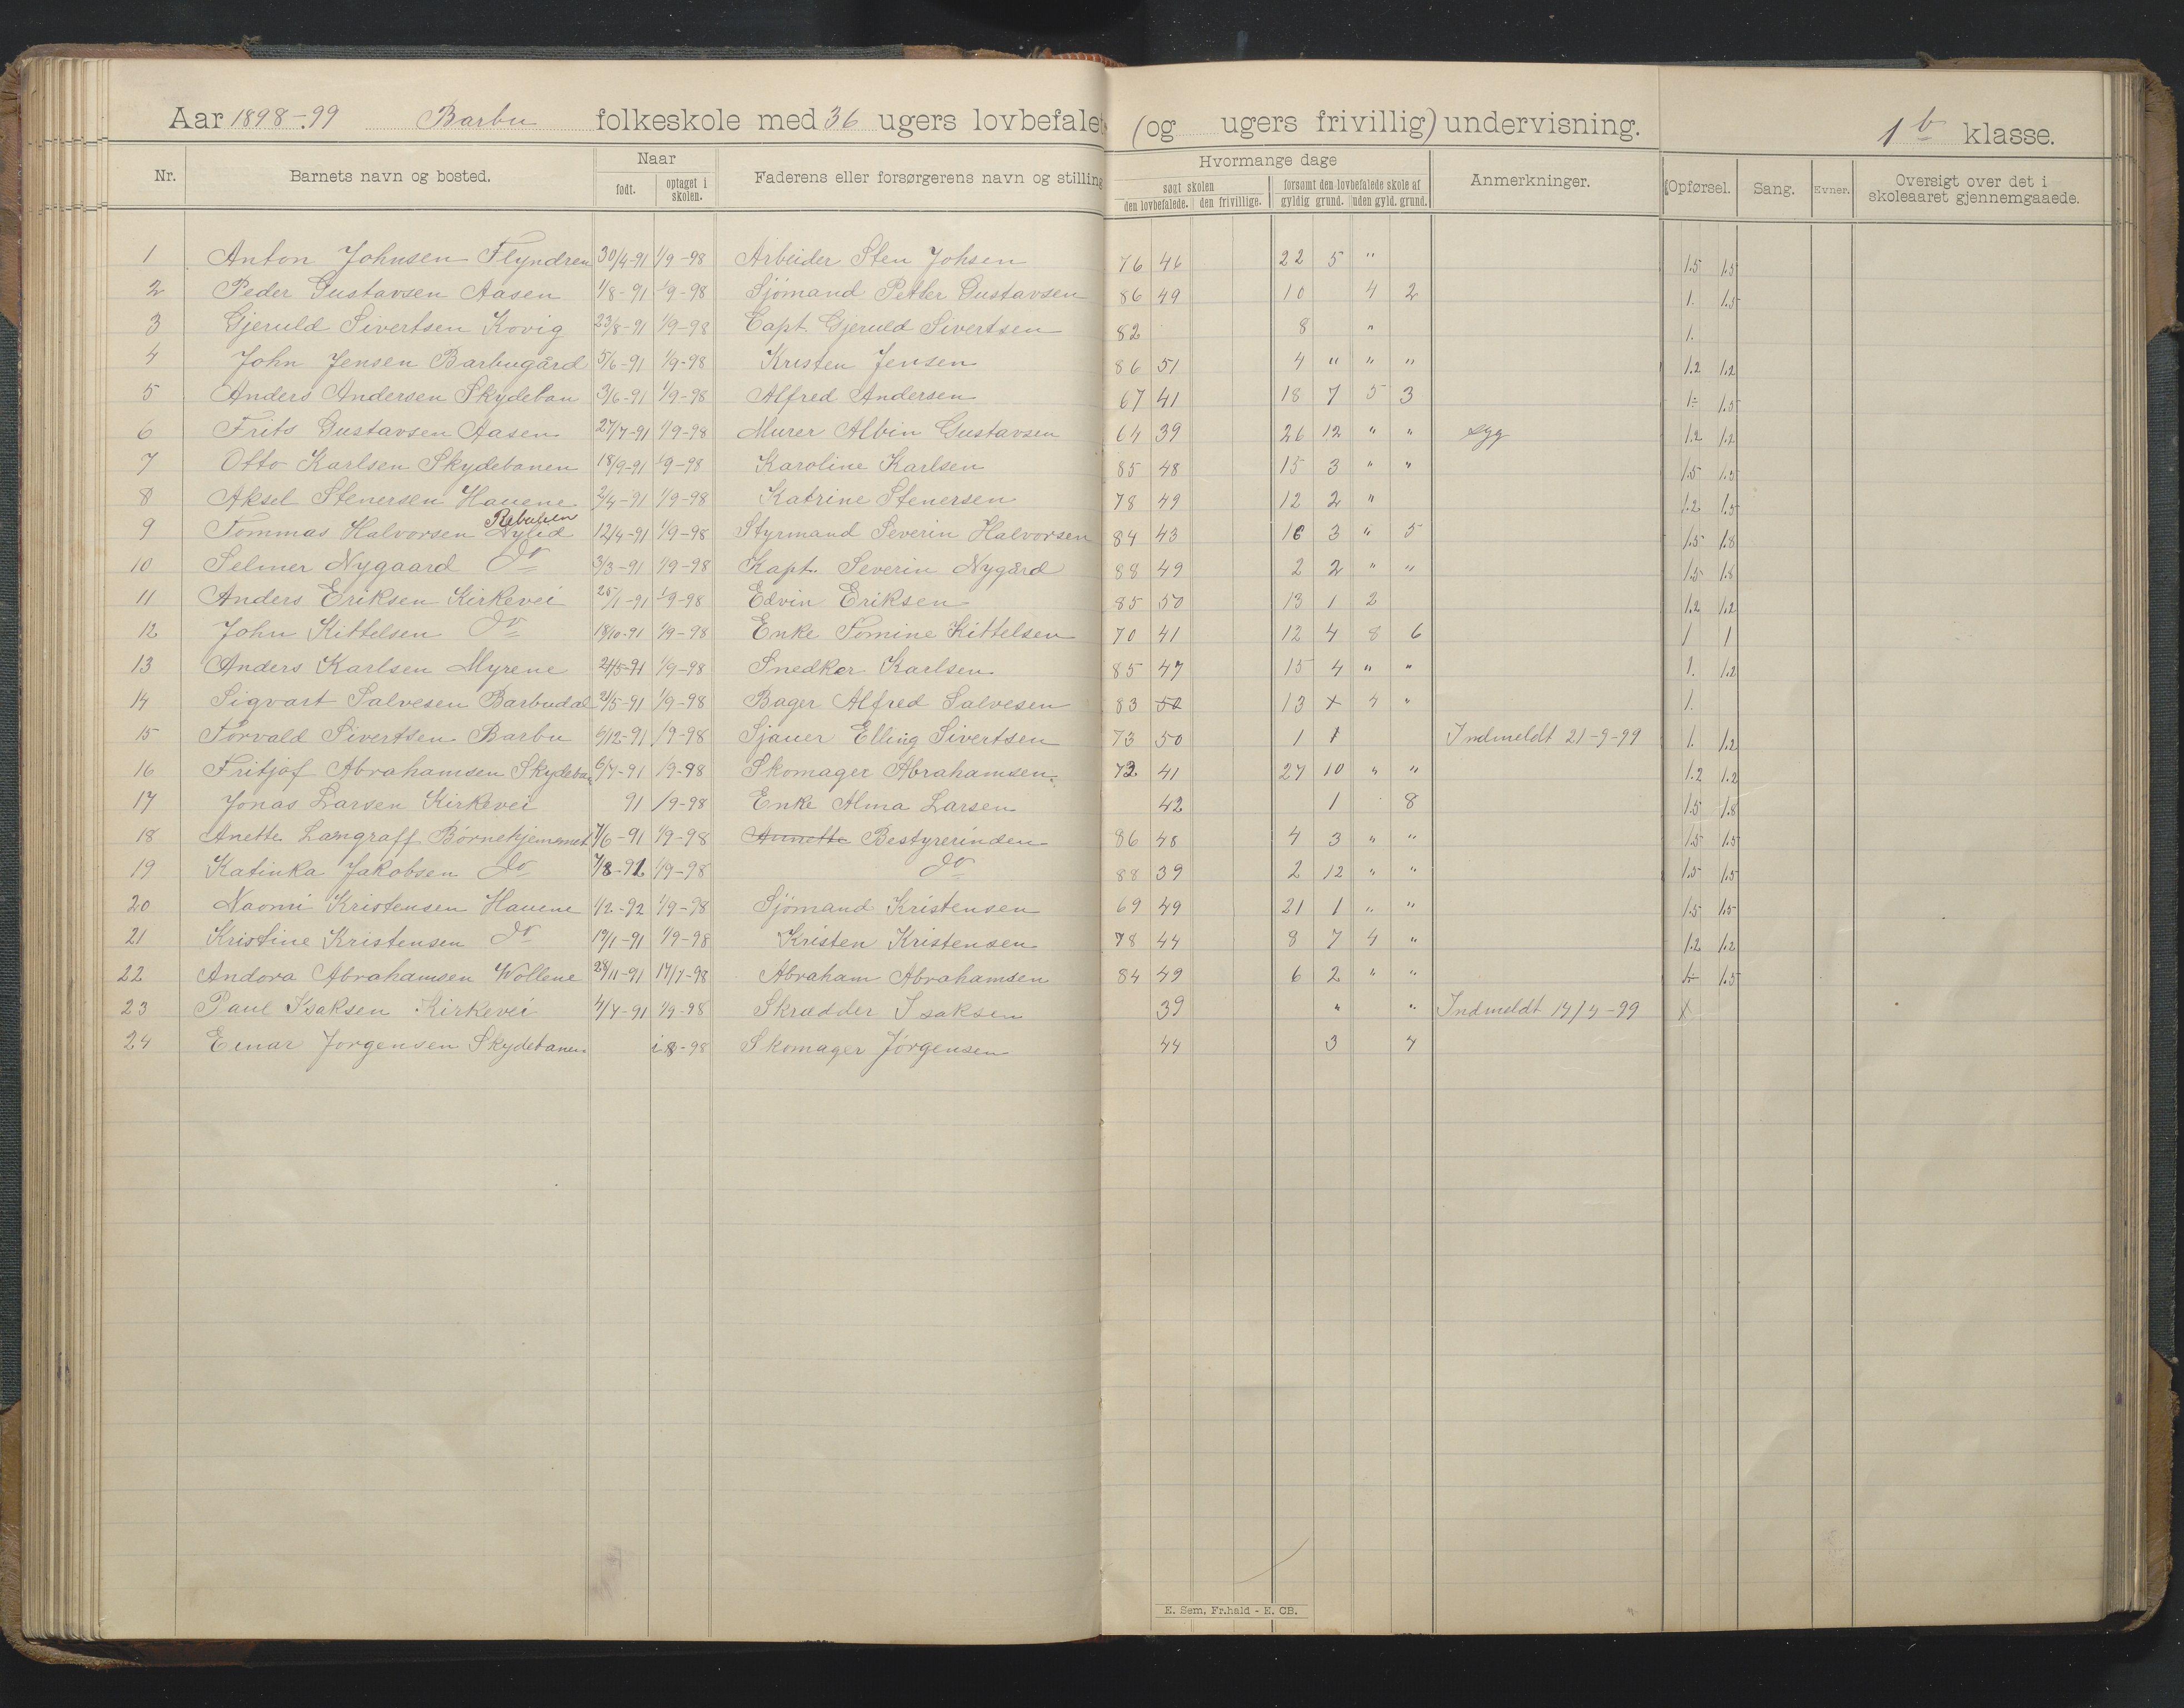 Aar 1898-99 Barbu folkeskole med 36 ugers lovbefalet (og ugers frivillig) undervisning. 1b klasse.
Nr. Barnets navn og bosted. Naar født. optaget i skolen. Faderens eller forsørgerens navn og stilling Hvormange dage søgt skolen den lovbefalede. den frivillige. forsømt den lovbefalede skole af gyldig grund. uden gyld. grund. Anmerkninger. Opførsel. Sang. Evner. Oversigt over det i skoleaaret gjennemgaaede.
1 Anton Johnsen Flyndren 30/4-91 1/9-98 Arbeider Sten Johsen 76 46 22 5 " 1.5 1.5
2 Peder Gustavsen Aasen 1/8-91 1/9-98 Sjömand Petter Gustavsen 86 49 10 4 2 1. 1.5
3 Gjeruld Sivertsen Kovig 23/8-91 1/9-98 Capt. Gjeruld Sivertsen 82 8 " 1.
4 John Jensen Barbugård 5/6-91 1/9-98 Kristen Jensen 86 51 4 " " " 1.2 1.2
5 Anders Andersen Skydeban 3/6-91 1/9-98 Alfred Andersen 67 41 18 7 5 3 1.5
6 Frits Gustavsen Aasen 27/7-91 1/9-98 Murer Albin Gustavsen 64 39 26 12 " " syg 1.2 1.2
7 Otto Karlsen Skydebanen 18/9-91 1/9-98 Karoline Karlsen 85 48 15 3 " " 1.5 1.5
8 Aksel Stenersen Hauene 2/4-91 1/9-98 Katrine Stenersen 78 49 12 2 " 1.2 1.5
9 Tommas Halvorsen Nylid 12/4-91 1/9-98 Styrmand Severin Halvorsen 84 43 16 3 " 5 1.5 1.8
10 Selmer Nygaard do 3/3-91 1/9-98 Kapt. Severin Nygård 88 49 2 2 " " 1.5 1.8
11 Anders Eriksen Kirkevei 25/1-91 1/9-98 Edvin Eriksen 85 50 13 1 2 1.2 1.2
12 John Kittelsen do 18/10-91 1/9-98 Enke Tomine Kittelsen 70 41 12 4 8 6 1 1
13 Anders Karlsen Myrene 21/5-91 1/9-98 Snedker Karlsen 85 47 15 4 " " 1. 1.2
14 Sigvart Salvesen Barbudal 21/5-91 1/9-98 Bager Alfred Salvesen 83 50 13 x 4 " 1.
15 Torvald Sivertsen Barbu 6/12-91 /9-98 Sjauer Elling Sivertsen 73 50 1 1 Indmeldt 21-9-99 1. 1.2
16 Fritjof Abrahamsen Skydeban 6/7-91 /9-98 Skomager Abrahamsen 72 41 27 10 " " 1.2 1.2
17 Jonas Larsen Kirkevei 91 /9-98 Enke Alma Larsen 42 1 8 1.5 1.8
18 Anette Langraff Börnehjemmet 7/6-91 1/9-98 Annette Bestyrerinden 86 48 4 3 " " 1.5 1.5
19 Katinka Jakobsen do 7/8-91 1/9-98 do 88 39 2 12 " " 1.5 1.5
20 Naomi Kristensen Hauene 1/2-92 1/9-98 Sjömand Kristensen 69 49 21 1 " " 1.5 1.5
21 Kristine Kristensen do 19/1-91 1/9-98 Kristen Kristensen 78 44 8 7 4 " 1.2 1.2
22 Andora Abrahamsen Wollene 28/11-91 17/7-98 Abraham Abrahamsen 84 49 6 2 " " 1.5
23 Paul Isaksen Kirkevei 4/7-91 1/9-98 Skrædder Isaksen 39 " " Indmeldt 14/4-99 x
24 Einar Jorgensen Skydebanen i 8-98 Skomager Jörgensen 44 3 7
E. Sem, Fr.hald - E. CB.